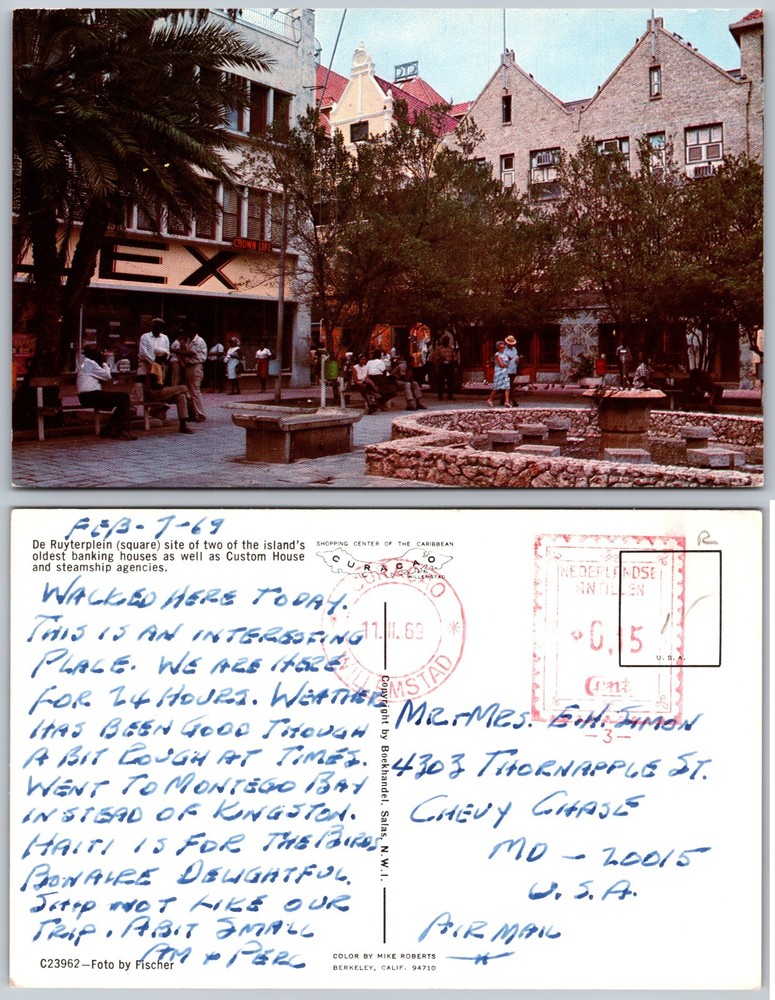 CROWN LIFE
EX
FEB-7-69
De Ruyterplein (square) site of two of the island's
oldest banking houses as well as Custom House
and steamship agencies.
WALKED HERE TODAY.
THIS IS AN INTERESTING
PLACE. WE ARE HERE
FOR 24 HOURS. WEATHER
HAS BEEN GOOD THOUGH
A BIT ROUGH AT TIMES.
WENT TO MONTEGO BAY
INSTEAD OF KINGSTON.
HAITI IS FOR THE BIRDS
BONAIRE DELIGHTFUL.
SHIP NOT LIKE OUR
TRIP. A BIT SMALL
AM + PERC
C23962—Foto by Fischer
SHOPPING CENTER OF THE CARIBBEAN
CURAÇAO
WILLEMSTAD
11.II.69
WILLEMSTAD
Copyright by Boekhandel, Salas, N.W.I.
COLOR BY MIKE ROBERTS
BERKELEY, CALIF. 94710
R
NEDERLANDSE
ANTILLEN
0,15
Cent
-3-
U.S.A.
MR + MRS. E.H. SIMON
4303 THORNAPPLE ST.
CHEVY CHASE
MD - 20015
U.S.A.
AIR MAIL